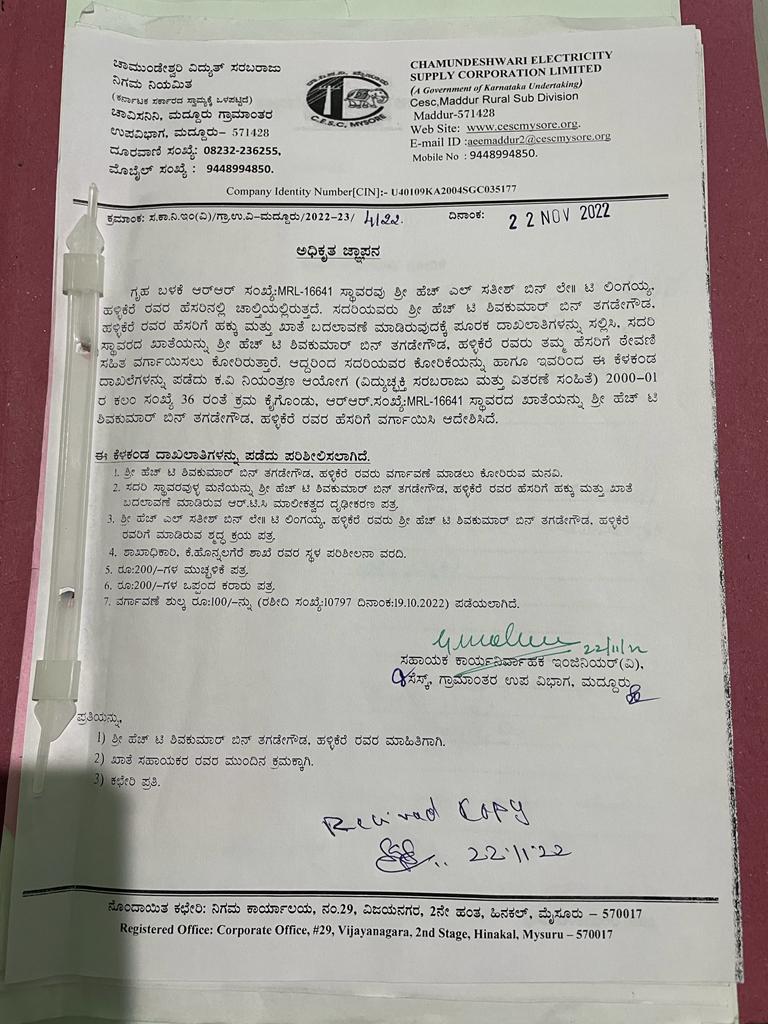 ಚಾಮುಂಡೇಶ್ವರಿ ವಿದ್ಯುತ್ ಸರಬರಾಜು
ನಿಗಮ ನಿಯಮಿತ
(ಕರ್ನಾಟಕ ಸರ್ಕಾರದ ಸ್ವಾಮ್ಯಕ್ಕೆ ಒಳಪಟ್ಟಿದೆ)
ಚಾವಿಸನಿನಿ, ಮದ್ದೂರು ಗ್ರಾಮಾಂತರ
ಉಪವಿಭಾಗ, ಮದ್ದೂರು– 571428
ದೂರವಾಣಿ ಸಂಖ್ಯೆ: 08232-236255,
ಮೊಬೈಲ್ ಸಂಖ್ಯೆ : 9448994850.
C.E.S.C. MYSORE
CHAMUNDESHWARI ELECTRICITY
SUPPLY CORPORATION LIMITED
(A Government of Karnataka Undertaking)
Cesc,Maddur Rural Sub Division
Maddur-571428
Web Site: www.cescmysore.org.
E-mail ID :aeemaddur2@cescmysore.org
Mobile No : 9448994850.
Company Identity Number[CIN]:- U40109KA2004SGC035177
ಕ್ರಮಾಂಕ: ಸ.ಕಾ.ನಿ.ಇಂ(ವಿ)/ಗ್ರಾ.ಉ.ವಿ-ಮದ್ದೂರು/2022-23/ 4122. ದಿನಾಂಕ: 22 NOV 2022
ಅಧಿಕೃತ ಜ್ಞಾಪನ
ಗೃಹ ಬಳಕೆ ಆರ್‌ಆರ್ ಸಂಖ್ಯೆ:MRL-16641 ಸ್ಥಾವರವು ಶ್ರೀ ಹೆಚ್ ಎಲ್ ಸತೀಶ್ ಬಿನ್ ಲೇ॥ ಟಿ ಲಿಂಗಯ್ಯ,
ಹಳ್ಳಿಕೆರೆ ರವರ ಹೆಸರಿನಲ್ಲಿ ಚಾಲ್ತಿಯಲ್ಲಿರುತ್ತದೆ. ಸದರಿಯವರು ಶ್ರೀ ಹೆಚ್ ಟಿ ಶಿವಕುಮಾರ್ ಬಿನ್ ತಗಡೇಗೌಡ,
ಹಳ್ಳಿಕೆರೆ ರವರ ಹೆಸರಿಗೆ ಹಕ್ಕು ಮತ್ತು ಖಾತೆ ಬದಲಾವಣೆ ಮಾಡಿರುವುದಕ್ಕೆ ಪೂರಕ ದಾಖಲಾತಿಗಳನ್ನು ಸಲ್ಲಿಸಿ, ಸದರಿ
ಸ್ಥಾವರದ ಖಾತೆಯನ್ನು ಶ್ರೀ ಹೆಚ್ ಟಿ ಶಿವಕುಮಾರ್ ಬಿನ್ ತಗಡೇಗೌಡ, ಹಳ್ಳಿಕೆರೆ ರವರು ತಮ್ಮ ಹೆಸರಿಗೆ ಠೇವಣಿ
ಸಹಿತ ವರ್ಗಾಯಿಸಲು ಕೋರಿರುತ್ತಾರೆ. ಆದ್ದರಿಂದ ಸದರಿಯವರ ಕೋರಿಕೆಯನ್ನು ಹಾಗೂ ಇವರಿಂದ ಈ ಕೆಳಕಂಡ
ದಾಖಲೆಗಳನ್ನು ಪಡೆದು ಕ.ವಿ ನಿಯಂತ್ರಣ ಆಯೋಗ (ವಿದ್ಯುಚ್ಛಕ್ತಿ ಸರಬರಾಜು ಮತ್ತು ವಿತರಣೆ ಸಂಹಿತೆ) 2000-01
ರ ಕಲಂ ಸಂಖ್ಯೆ 36 ರಂತೆ ಕ್ರಮ ಕೈಗೊಂಡು, ಆರ್‌ಆರ್.ಸಂಖ್ಯೆ:MRL-16641 ಸ್ಥಾವರದ ಖಾತೆಯನ್ನು ಶ್ರೀ ಹೆಚ್ ಟಿ
ಶಿವಕುಮಾರ್ ಬಿನ್ ತಗಡೇಗೌಡ, ಹಳ್ಳಿಕೆರೆ ರವರ ಹೆಸರಿಗೆ ವರ್ಗಾಯಿಸಿ ಆದೇಶಿಸಿದೆ.
ಈ ಕೆಳಕಂಡ ದಾಖಲಾತಿಗಳನ್ನು ಪಡೆದು ಪರಿಶೀಲಿಸಲಾಗಿದೆ.
1. ಶ್ರೀ ಹೆಚ್ ಟಿ ಶಿವಕುಮಾರ್ ಬಿನ್ ತಗಡೇಗೌಡ, ಹಳ್ಳಿಕೆರೆ ರವರು ವರ್ಗಾವಣೆ ಮಾಡಲು ಕೋರಿರುವ ಮನವಿ.
2. ಸದರಿ ಸ್ಥಾವರವುಳ್ಳ ಮನೆಯನ್ನು ಶ್ರೀ ಹೆಚ್ ಟಿ ಶಿವಕುಮಾರ್ ಬಿನ್ ತಗಡೇಗೌಡ, ಹಳ್ಳಿಕೆರೆ ರವರ ಹೆಸರಿಗೆ ಹಕ್ಕು ಮತ್ತು ಖಾತೆ
ಬದಲಾವಣೆ ಮಾಡಿರುವ ಆರ್.ಟಿ.ಸಿ ಮಾಲೀಕತ್ವದ ದೃಢೀಕರಣ ಪತ್ರ.
3. ಶ್ರೀ ಹೆಚ್ ಎಲ್ ಸತೀಶ್ ಬಿನ್ ಲೇ॥ ಟಿ ಲಿಂಗಯ್ಯ, ಹಳ್ಳಿಕೆರೆ ರವರು ಶ್ರೀ ಹೆಚ್ ಟಿ ಶಿವಕುಮಾರ್ ಬಿನ್ ತಗಡೇಗೌಡ, ಹಳ್ಳಿಕೆರೆ
ರವರಿಗೆ ಮಾಡಿರುವ ಶುದ್ಧ ಕ್ರಯ ಪತ್ರ.
4. ಶಾಖಾಧಿಕಾರಿ, ಕೆ.ಹೊನ್ನಲಗೆರೆ ಶಾಖೆ ರವರ ಸ್ಥಳ ಪರಿಶೀಲನಾ ವರದಿ.
5. ರೂ:200/-ಗಳ ಮುಚ್ಛಳಿಕೆ ಪತ್ರ.
6. ರೂ:200/-ಗಳ ಒಪ್ಪಂದ ಕರಾರು ಪತ್ರ.
7. ವರ್ಗಾವಣೆ ಶುಲ್ಕ ರೂ:100/-ನ್ನು (ರಶೀದಿ ಸಂಖ್ಯೆ:10797 ದಿನಾಂಕ:19.10.2022) ಪಡೆಯಲಾಗಿದೆ.
22/11/22
ಸಹಾಯಕ ಕಾರ್ಯನಿರ್ವಾಹಕ ಇಂಜಿನಿಯರ್(ವಿ),
ಸೆಸ್ಕ್, ಗ್ರಾಮಾಂತರ ಉಪ ವಿಭಾಗ, ಮದ್ದೂರು
ಪ್ರತಿಯನ್ನು,
1) ಶ್ರೀ ಹೆಚ್ ಟಿ ಶಿವಕುಮಾರ್ ಬಿನ್ ತಗಡೇಗೌಡ, ಹಳ್ಳಿಕೆರೆ ರವರ ಮಾಹಿತಿಗಾಗಿ.
2) ಖಾತೆ ಸಹಾಯಕರ ರವರ ಮುಂದಿನ ಕ್ರಮಕ್ಕಾಗಿ.
3) ಕಛೇರಿ ಪ್ರತಿ.
Recived Copy
22.11.22
ನೊಂದಾಯಿತ ಕಛೇರಿ: ನಿಗಮ ಕಾರ್ಯಾಲಯ, ನಂ.29, ವಿಜಯನಗರ, 2ನೇ ಹಂತ, ಹಿನಕಲ್, ಮೈಸೂರು – 570017
Registered Office: Corporate Office, #29, Vijayanagara, 2nd Stage, Hinakal, Mysuru – 570017